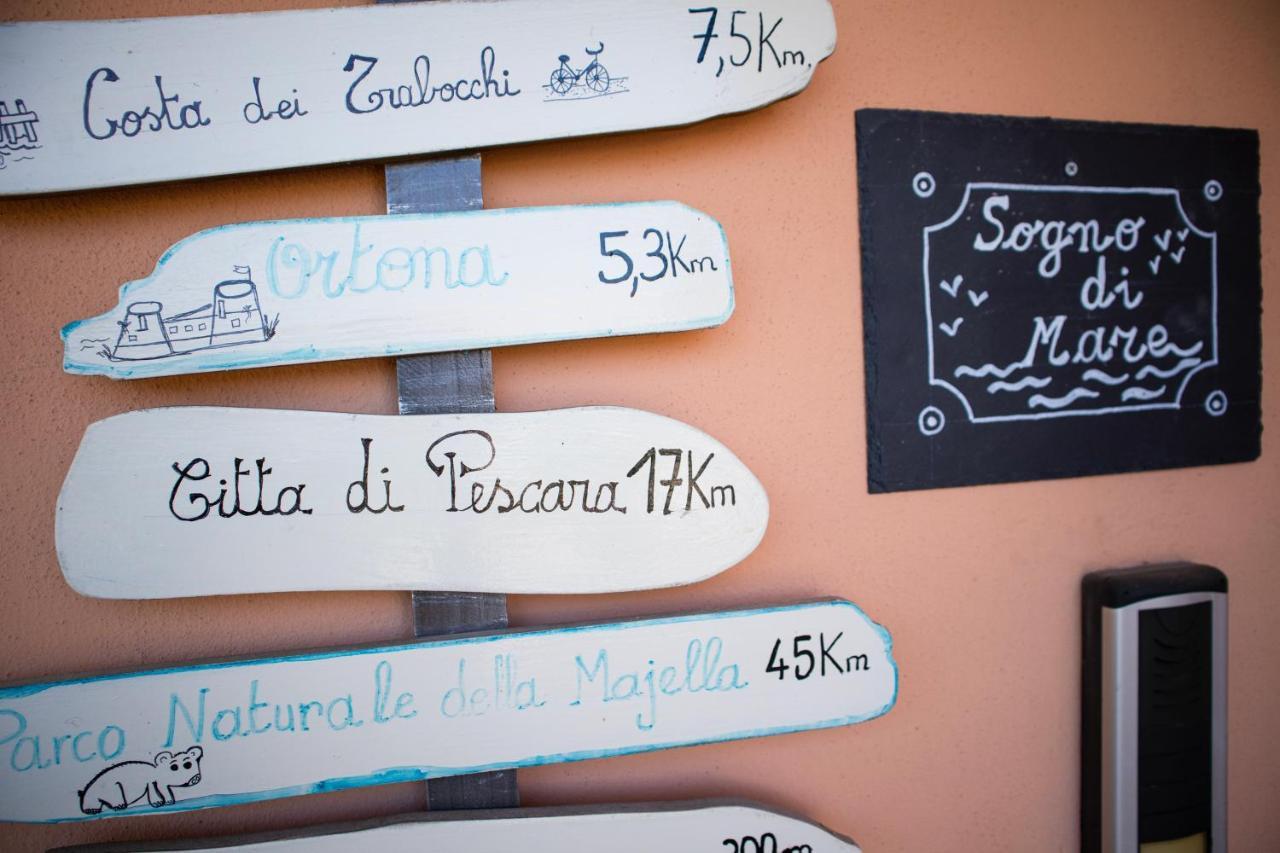 Costa dei Trabocchi 7,5Km.
Ortona 5,3Km
Citta di Pescara 17Km
Parco Naturale della Majella 45Km
200m
Sogno
di
Mare